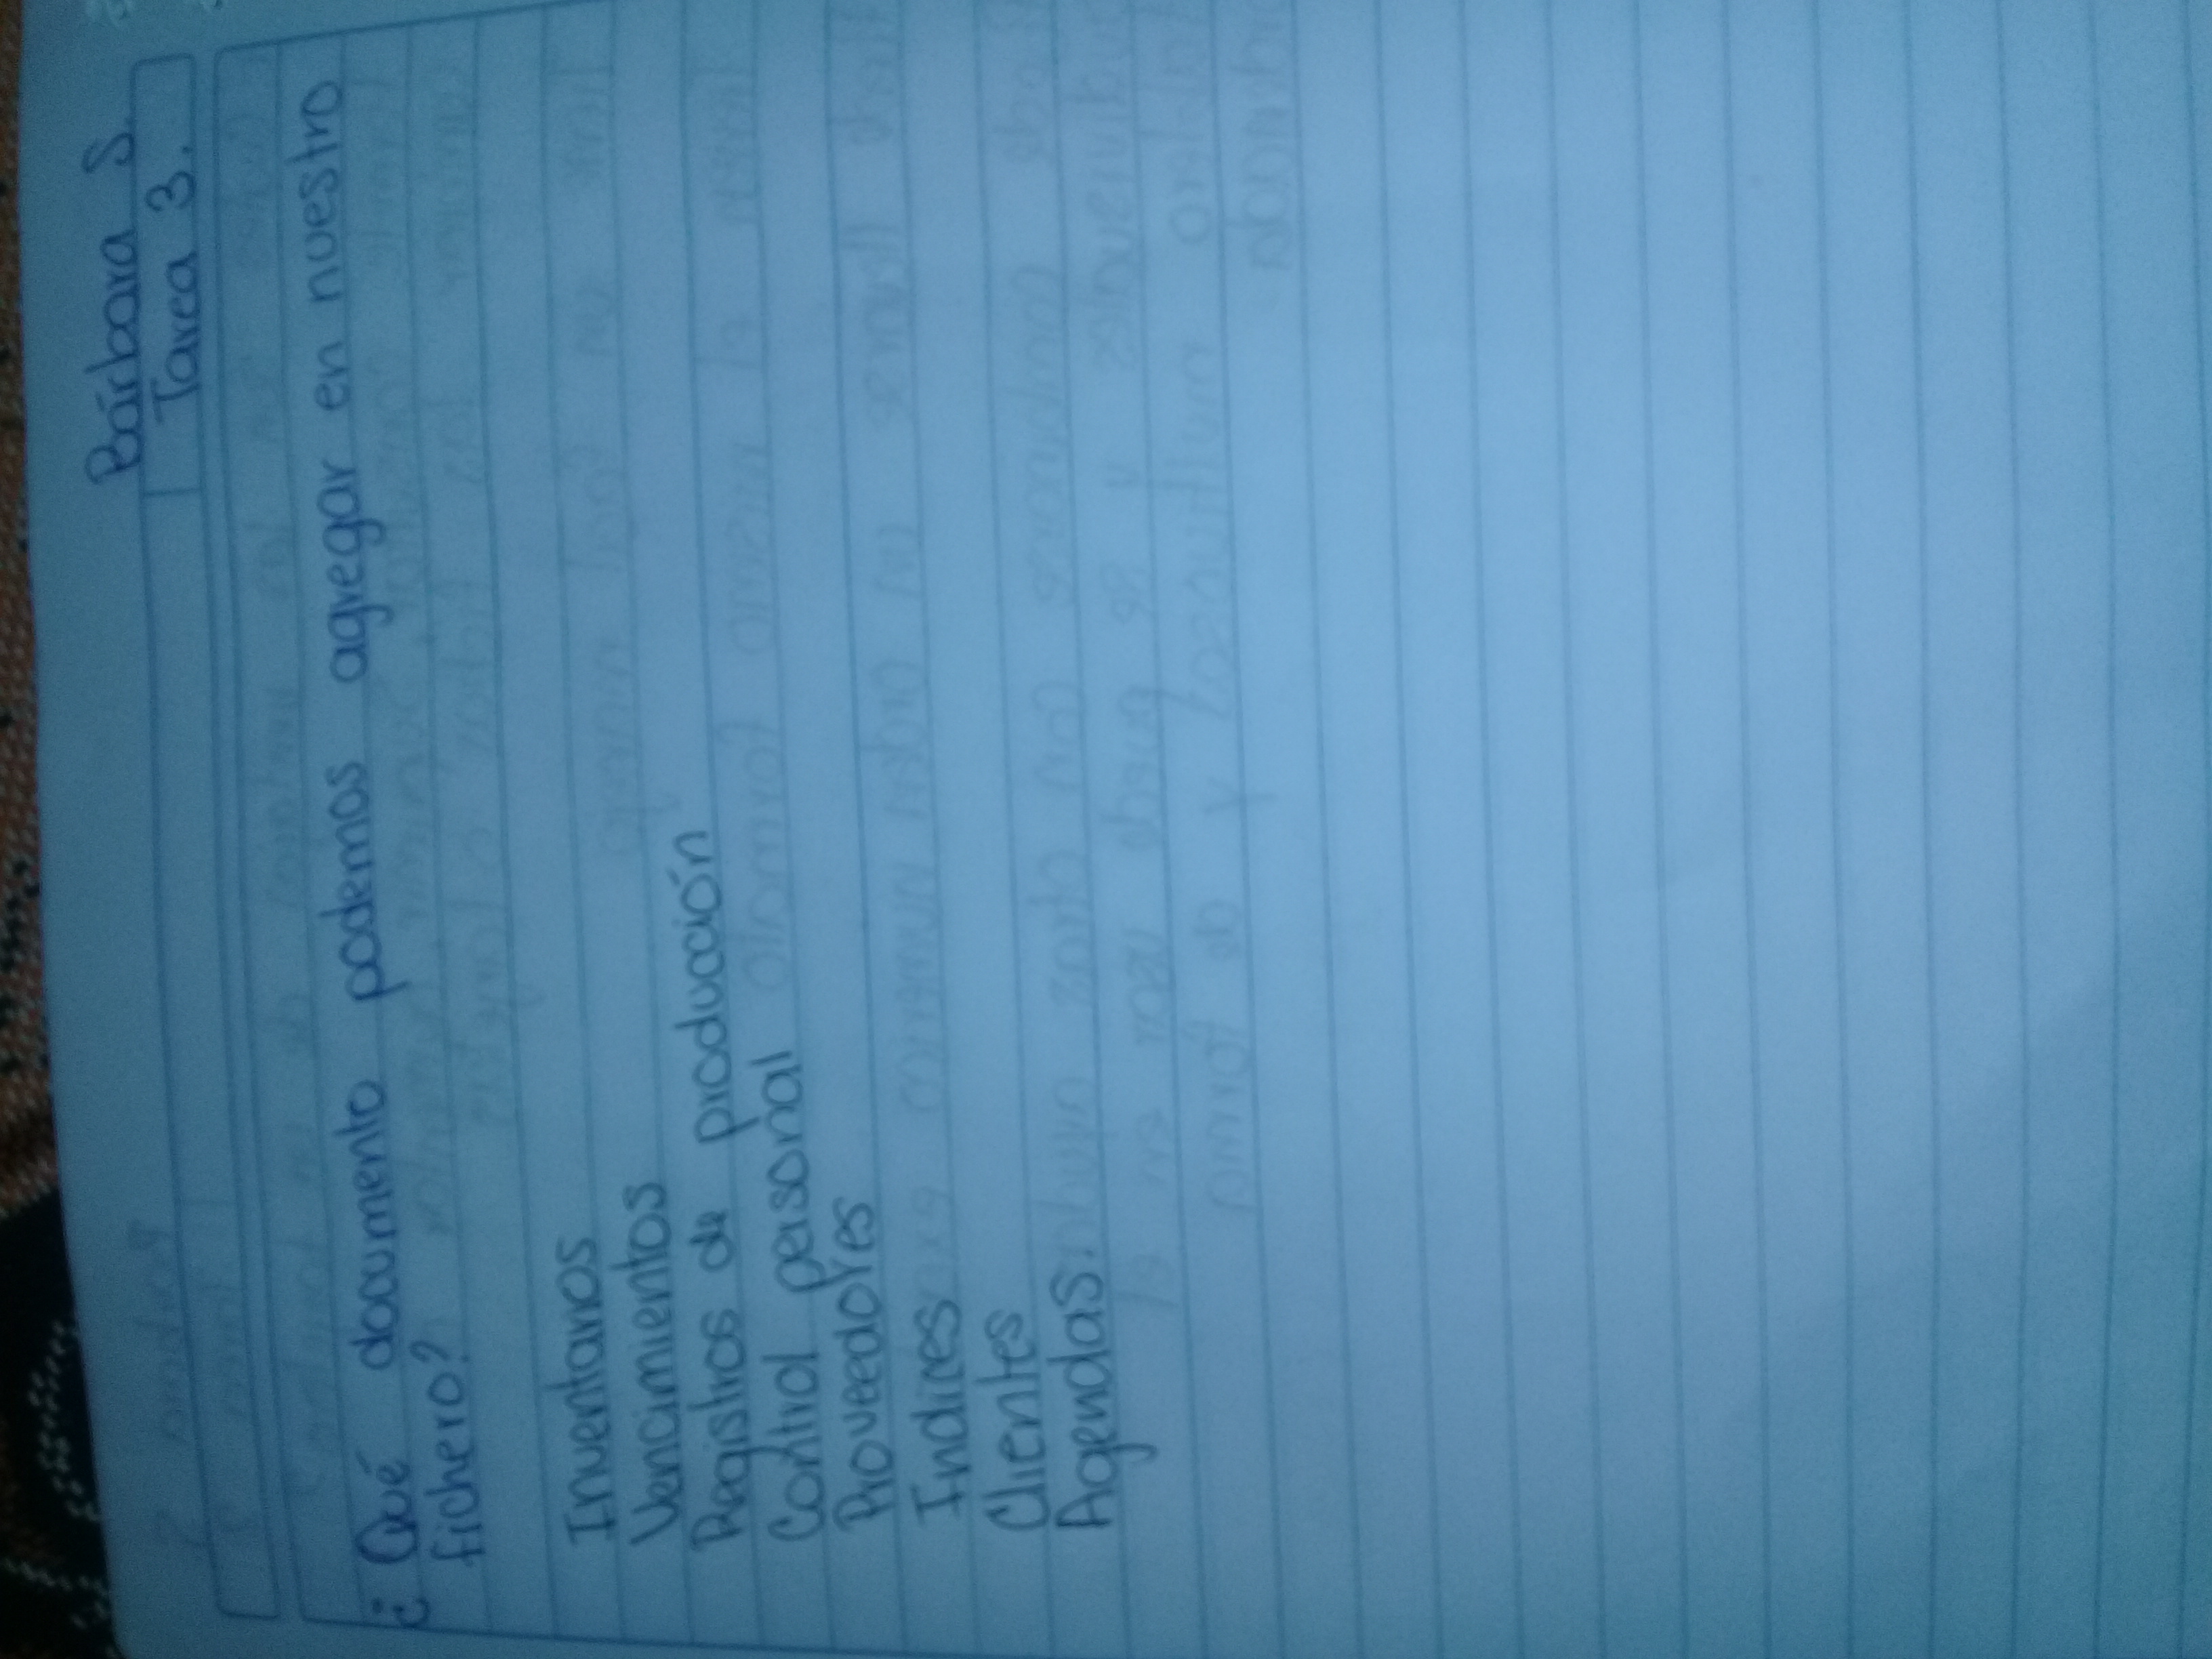 Bárbara S.
Tarea 3.
¿Qué documento podemos agregar en nuestro
fichero?
Inventarios
Vencimientos
Registros de producción
Control personal
Proveedores
Indices
Clientes
Agendas.